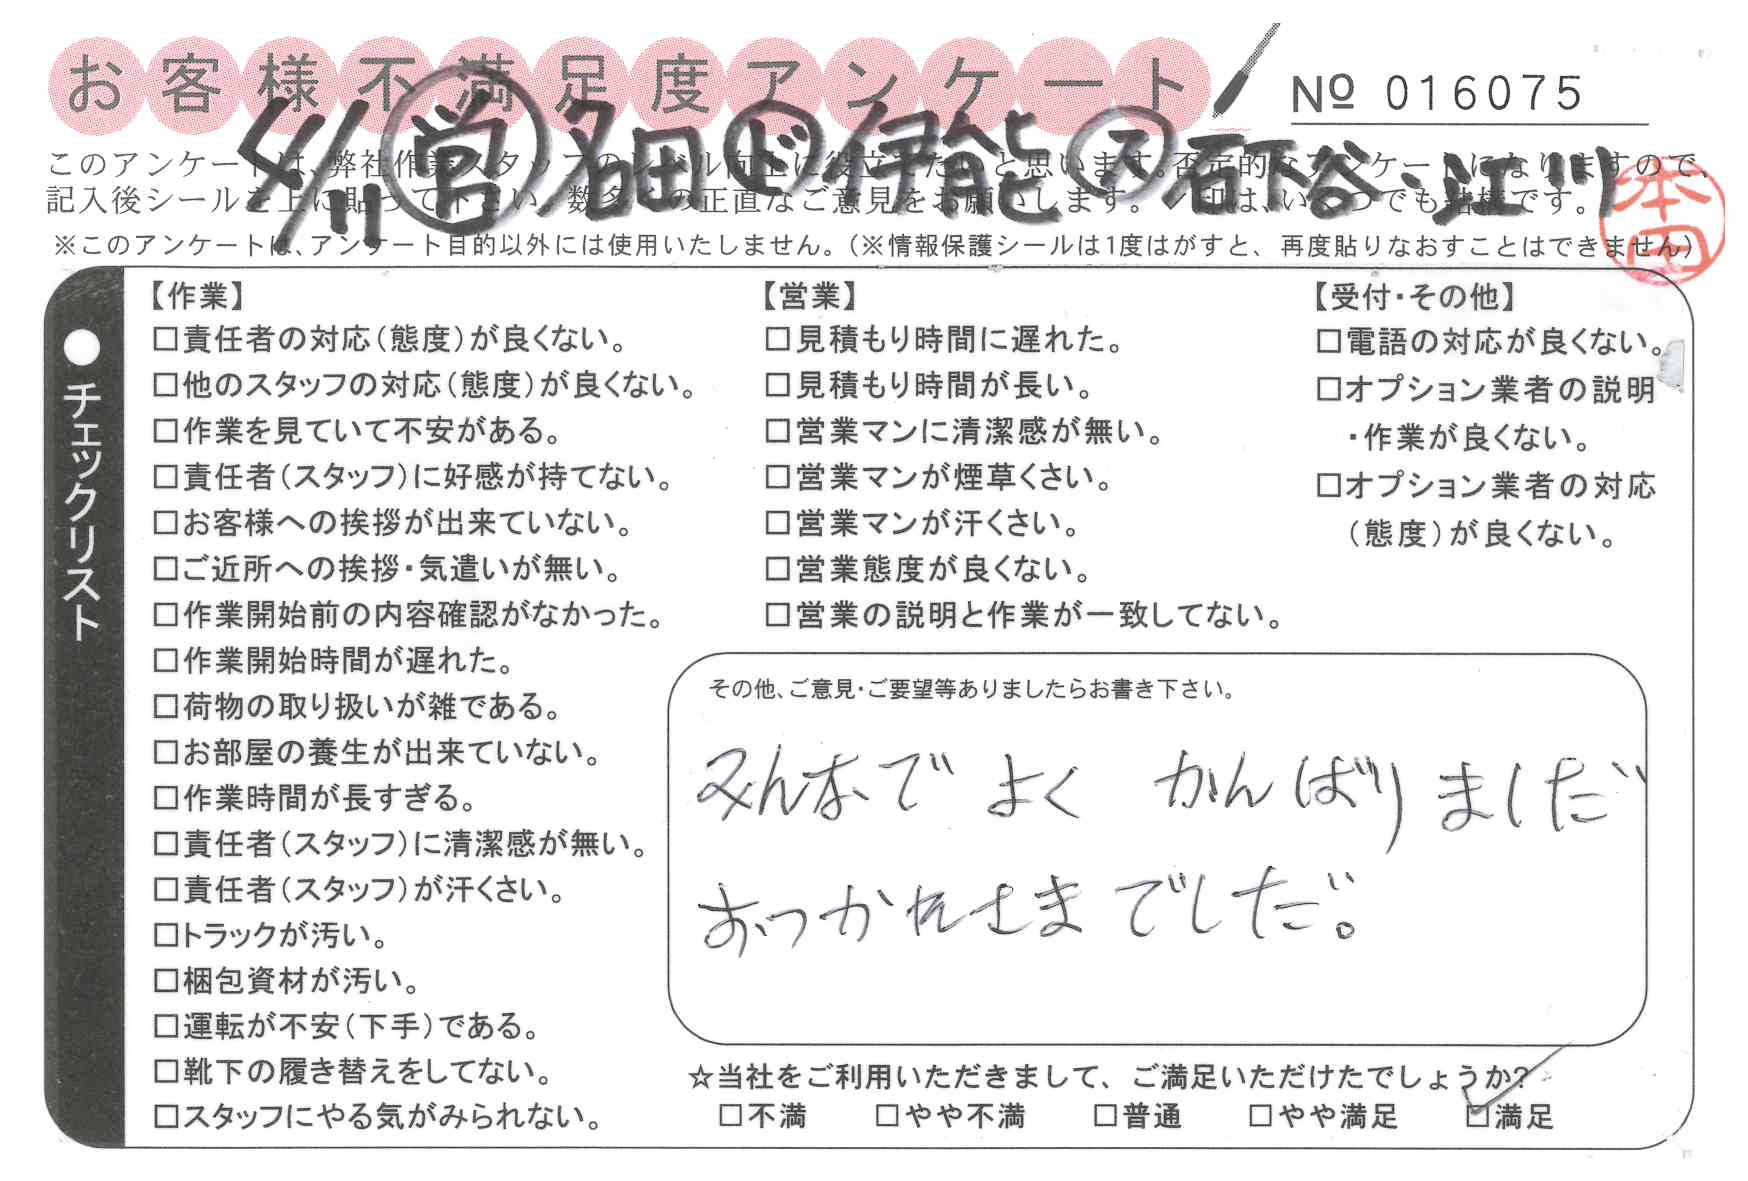 お客様不満足度アンケート
№ 016075
4/11 営 名田 ド 伊能 ス 百谷・江川
このアンケートは、弊社作業スタッフのレベル向上に役立てたいと思います。否定的なアンケートになりますので、
記入後シールを上に貼って下さい。数多くの正直なご意見をお願いします。✓印は、いくつでも結構です。
本田
※このアンケートは、アンケート目的以外には使用いたしません。(※情報保護シールは1度はがすと、再度貼りなおすことはできません)
●チェックリスト
【作業】
□責任者の対応(態度)が良くない。
□他のスタッフの対応(態度)が良くない。
□作業を見ていて不安がある。
□責任者(スタッフ)に好感が持てない。
□お客様への挨拶が出来ていない。
□ご近所への挨拶・気遣いが無い。
□作業開始前の内容確認がなかった。
□作業開始時間が遅れた。
□荷物の取り扱いが雑である。
□お部屋の養生が出来ていない。
□作業時間が長すぎる。
□責任者(スタッフ)に清潔感が無い。
□責任者(スタッフ)が汗くさい。
□トラックが汚い。
□梱包資材が汚い。
□運転が不安(下手)である。
□靴下の履き替えをしてない。
□スタッフにやる気がみられない。
【営業】
□見積もり時間に遅れた。
□見積もり時間が長い。
□営業マンに清潔感が無い。
□営業マンが煙草くさい。
□営業マンが汗くさい。
□営業態度が良くない。
□営業の説明と作業が一致してない。
【受付・その他】
□電話の対応が良くない。
□オプション業者の説明
・作業が良くない。
□オプション業者の対応
(態度)が良くない。
その他、ご意見・ご要望等ありましたらお書き下さい。
みんなで よく かんばりましだ
おつかれさまでしだ。
☆当社をご利用いただきまして、ご満足いただけたでしょうか?
□不満 □やや不満 □普通 □やや満足 ☑満足